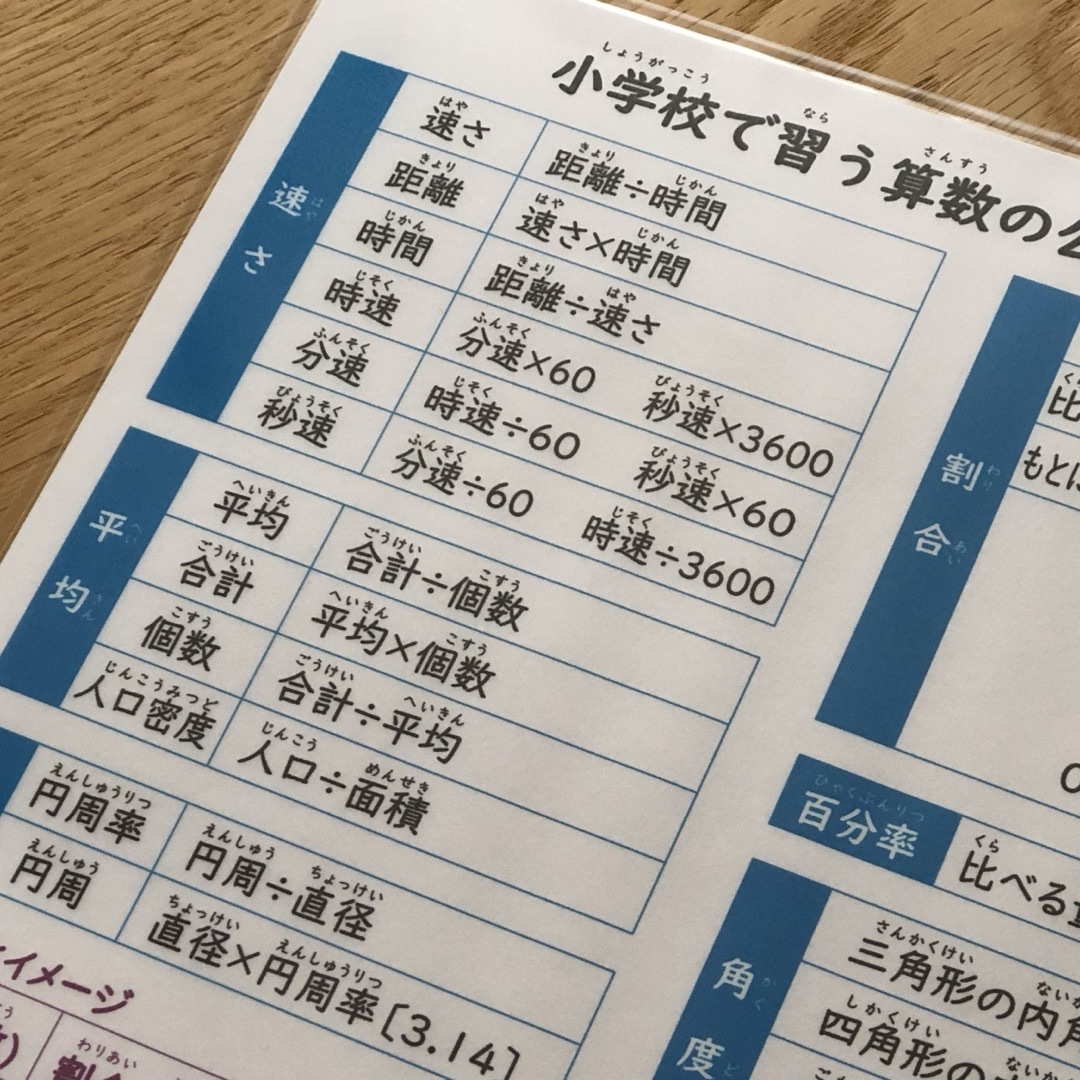 小学校で習う算数の
速さ
速さ 距離÷時間
距離 速さ×時間
時間 距離÷速さ
時速 分速×60 秒速×3600
分速 時速÷60 秒速×60
秒速 分速÷60 時速÷3600
平均
平均 合計÷個数
合計 平均×個数
個数 合計÷平均
人口密度 人口÷面積
円周率 円周÷直径
円周 直径×円周率[3.14]
イメージ
割合
比
もと
百分率
比べる
角度
三角形の内角
四角形の